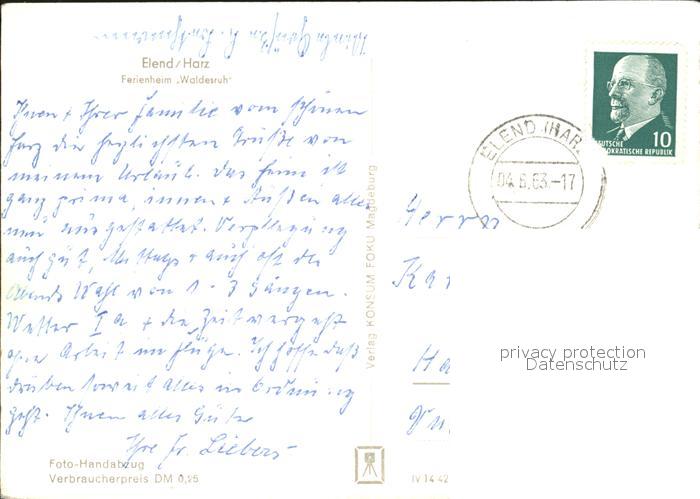 Elend/Harz
Ferienheim „Waldesruh"
Ihnen + Ihrer Familie vom schönen
Harz die herzlichsten Grüße von
meinem Urlaub. Das Heim ist
ganz prima, innen + Außen alles
neu ausgestattet. Verpflegung
auch gut, Mittags + auch oft des
Abends Wahl von 1 - 3 Gängen.
Wetter I a + die Zeit vergeht
ohne Arbeit im Fluge. Ich hoffe daß
drüben soweit alles in Ordnung
geht. Ihnen alles Gute
Ihre Fr. Liebers
Foto-Handabzug
Verbraucherpreis DM 0,25
Verlag KONSUM FOKU Magdeburg
IV 14 42
ELEND (HARZ
04.6.63.-17
10
DEUTSCHE
DEMOKRATISCHE REPUBLIK
Herrn
Kar
Ha
privacy protection
Datenschutz